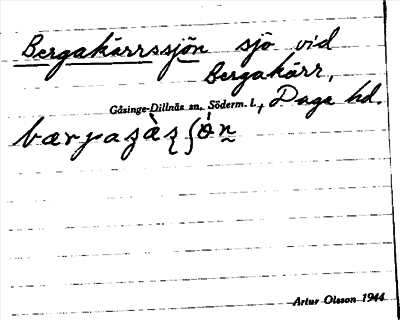 Bergakärrssjön sjö vid
Bergakärr,
Gåsinge-Dillnäs sn, Söderm. l., Daga hd.
Artur Olsson 1944